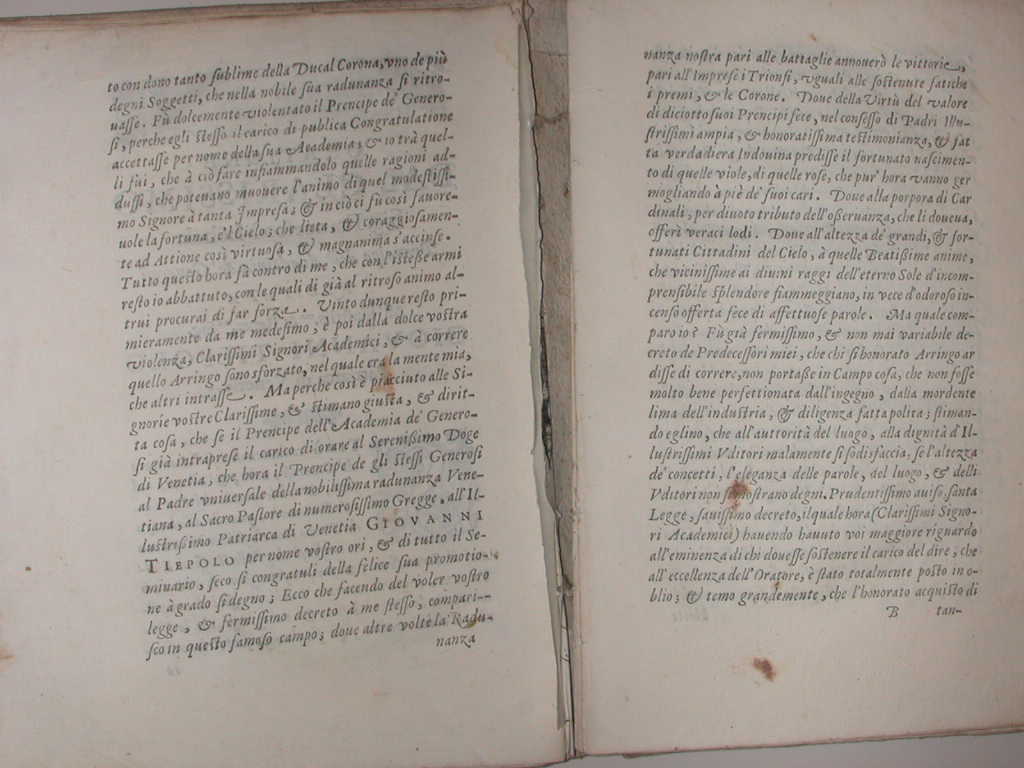 to con dono tanto sublime della Ducal Corona, vno de più
degni Soggetti, che nella nobile sua radunanza si ritro-
uasse. Fù dolcemente violentato il Prencipe de' Genero-
si, perche egli stesso il carico di publica Congratulatione
accettasse per nome della sua Academia; & io trà quel-
li fui, che à ciò fare infiammandolo quelle ragioni ad-
dussi, che poteuano muouere l'animo di quel modestissi-
mo Signore à tanta Impresa; & in ciò ci fù così fauore-
uole la fortuna, e'l Cielo; che lieta, & coraggiosamen-
te ad Attione così virtuosa, & magnanima s'accinse.
Tutto questo hora fà contro di me, che con l'istesse armi
resto io abbattuto, con le quali di già al ritroso animo al-
trui procurai di far forza. Vinto dunque resto pri-
mieramente da me medesimo, e poi dalla dolce vostra
violenza, Clarissimi Signori Academici, & à correre
quello Arringo sono sforzato, nel quale era la mente mia,
che altri intrasse. Ma perche così è piacciuto alle Si-
gnorie vostre Clarissime, & stimano giusta, & dirit-
ta cosa, che se il Prencipe dell'Academia de' Genero-
si già intraprese il carico di orare al Serenissimo Doge
di Venetia, che hora il Prencipe de gli stessi Generosi
al Padre vniuersale della nobilissima radunanza Vene-
tiana, al Sacro Pastore di numerosissimo Gregge, all'Il-
lustrissimo Patriarca di Venetia GIOVANNI
TIEPOLO per nome vostro ori, & di tutto il Se-
minario, seco si congratuli della felice sua promotio-
ne à grado sì degno; Ecco che facendo del voler vostro
legge, & fermissimo decreto à me stesso, compari-
sco in questo famoso campo; doue altre volte la Radu-
nanza
nanza nostra pari alle battaglie annouerò le vittorie,
pari all'Imprese i Trionfi, vguali alle sostenute fatiche
i premi, & le Corone. Doue della Virtù del valore
di diciotto suoi Prencipi fece, nel consesso di Padri Illu-
strissimi ampia, & honoratissima testimonianza, & fat
ta verdadiera Indouina predisse il fortunato nascimen-
to di quelle viole, di quelle rose, che pur' hora vanno ger
mogliando à piè de' suoi cari. Doue alla porpora di Car
dinali, per diuoto tributo dell'osseruanza, che li doueua,
offerì veraci lodi. Doue all'altezza de' grandi, & for-
tunati Cittadini del Cielo, à quelle Beatissime anime,
che vicinissime ai diuini raggi dell'eterno Sole d'incom-
prensibile splendore fiammeggiano, in vece d'odoroso in-
censo offerta fece di affettuose parole. Ma quale com-
paro io? Fù già fermissimo, & non mai variabile de-
creto de Predecessori miei, che chi sì honorato Arringo ar
disse di correre, non portasse in Campo cosa, che non fosse
molto bene perfettionata dall'ingegno, dalla mordente
lima dell'industria, & diligenza fatta polita; stiman-
do eglino, che all'auttorità del luogo, alla dignità d'Il-
lustrissimi Vditori malamente si sodisfaccia, se l'altezza
de' concetti, l'eleganza delle parole, del luogo, & delli
Vditori non si mostrano degni. Prudentissimo auiso, santa
Legge, sauissimo decreto, il quale hora (Clarissimi Signo-
ri Academici) hauendo hauuto voi maggiore riguardo
all'eminenza di chi douesse sostenere il carico del dire, che
all'eccellenza dell'Oratore, è stato totalmente posto in o-
blio; & temo grandemente, che l'honorato acquisto di
B tan-